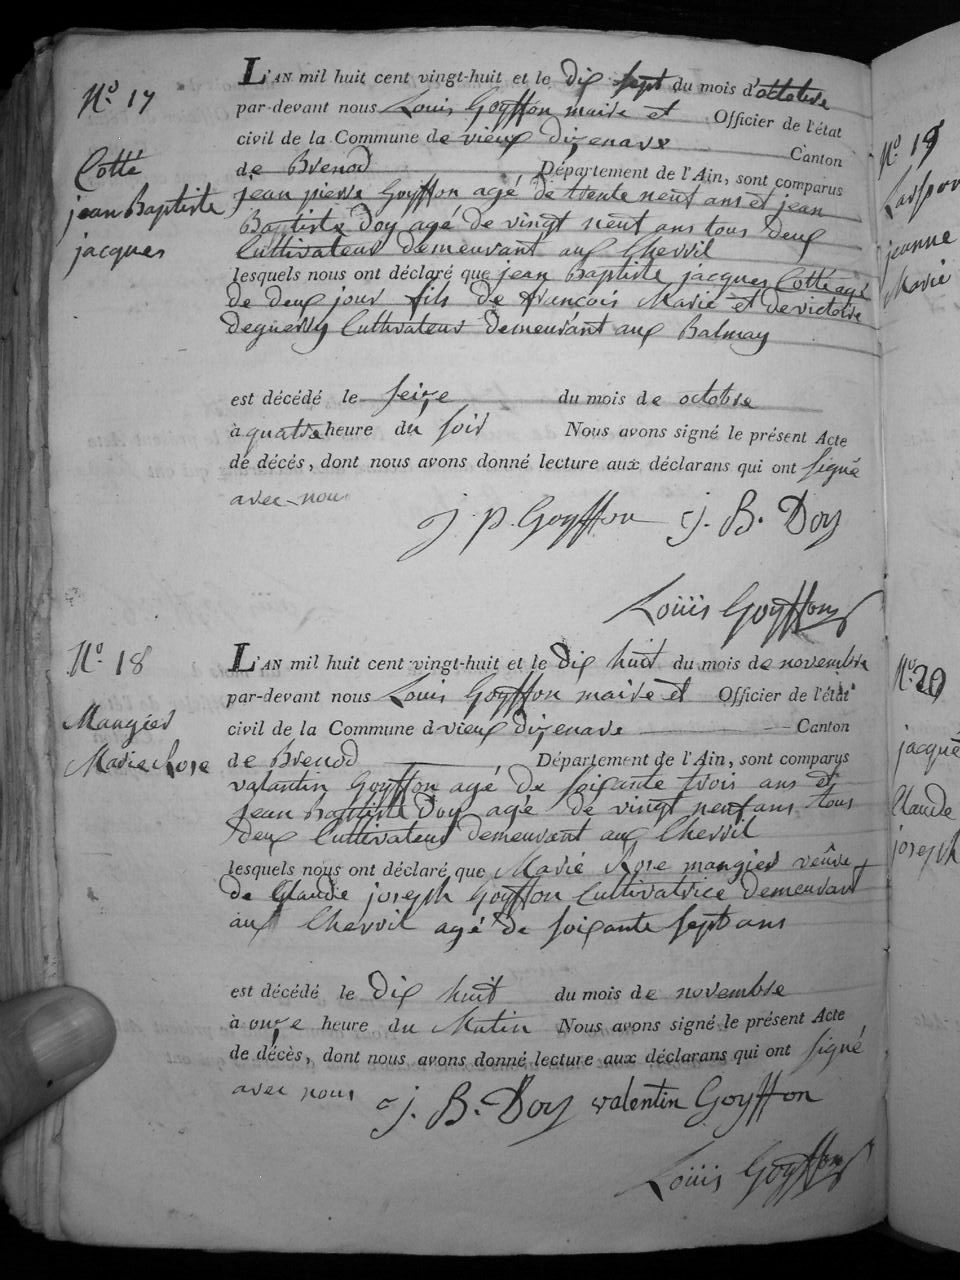 N.o 17
Cotté
jean Baptiste
jacques
L'AN mil huit cent vingt-huit et le dix sept du mois d'octobre
par-devant nous Louis Goyffon maire et Officier de l'état
civil de la Commune de vieux dizenave Canton
de Brenod Département de l'Ain, sont comparus
jean pierre Goyffon agé de trente neuf ans et jean
Baptiste Doy agé de vingt neuf ans tous deux
Cultivateur demeurant aux Chevril
lesquels nous ont déclaré que jean Baptiste jacques Cotté agé
de deux jour fils de francois Marie et de victoire
deguerry Cultivateur demeurant aux Balmay
est décédé le seize du mois de octobre
à quatre heure du soir Nous avons signé le présent Acte
de décés, dont nous avons donné lecture aux déclarans qui ont signé
avec nous
j. p. Goyffon j. B. Doy
Louis Goyffon
N.o 18
Mangier
Marie Rose
L'AN mil huit cent vingt-huit et le dix huit du mois de novembre
par-devant nous Louis Goyffon maire et Officier de l'état
civil de la Commune d vieux dizenave Canton
de Brenod Département de l'Ain, sont comparus
valantin Goyffon agé de soixante trois ans et
jean Baptiste Doy agé de vingt neuf ans tous
deux Cultivateur demeurant aux Chevril
lesquels nous ont déclaré que Marie Rose mangier veûve
de Claude joseph Goyffon Cultivatrice demeurant
aux Chevril agé de soixante sept ans
est décédé le dix huit du mois de novembre
à onze heure du Matin Nous avons signé le présent Acte
de décès, dont nous avons donné lecture aux déclarans qui ont signé
avec nous
j. B. Doy valentin Goyffon
Louis Goyffon
N.o 19
jeanne
Marie
N.o 20
jacque
Claude
joseph